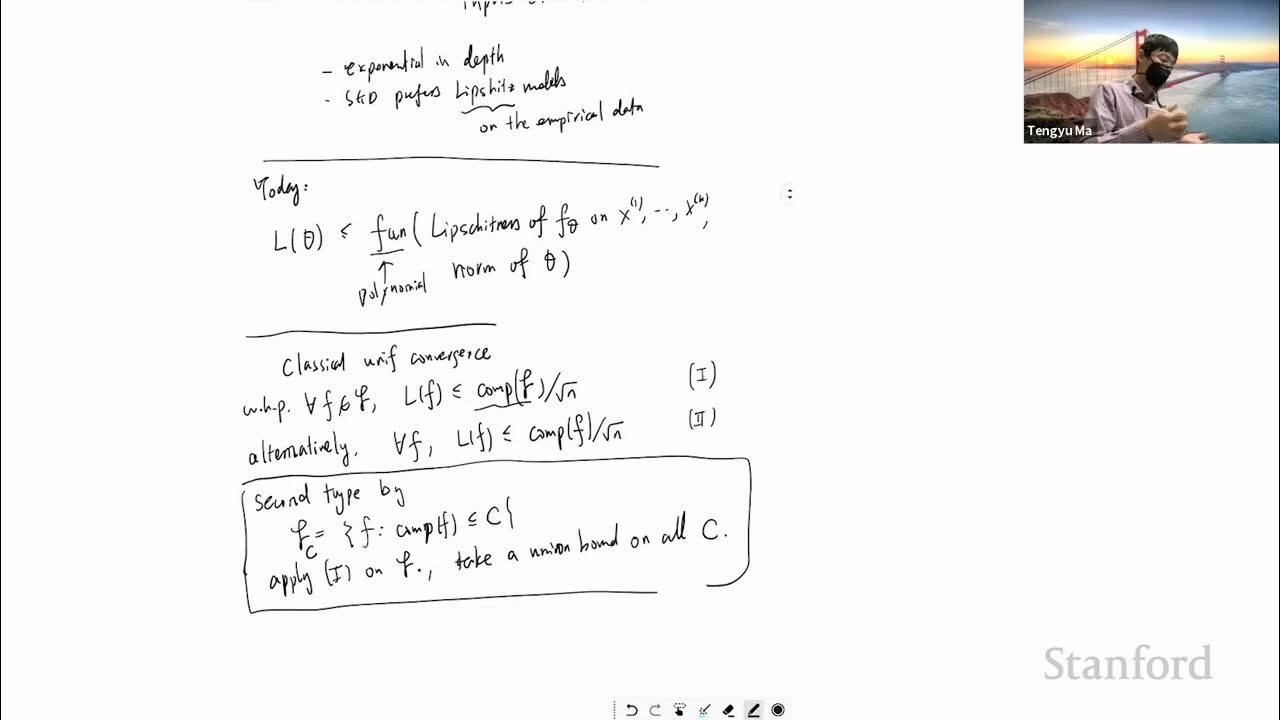 - exponential in depth
- SGD prefers Lipshitz models
on the empirical data
Today:
L(θ) ≤ fun( Lipschitness of f_θ on x^(1), ..., x^(n),
polynomial norm of θ)
Classical unif convergence
w.h.p. ∀f∈F, L(f) ≤ comp(F)/√n (I)
alternatively, ∀f, L(f) ≤ comp(f)/√n (II)
Second type by
F_C = {f: comp(f) ≤ C}
apply (I) on F., take a union bound on all C.
Tengyu Ma
Stanford